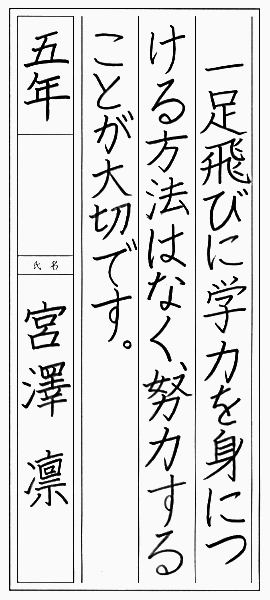 一足飛びに学力を身につ
ける方法はなく、努力する
ことが大切です。
五年
氏名
宮澤 凛